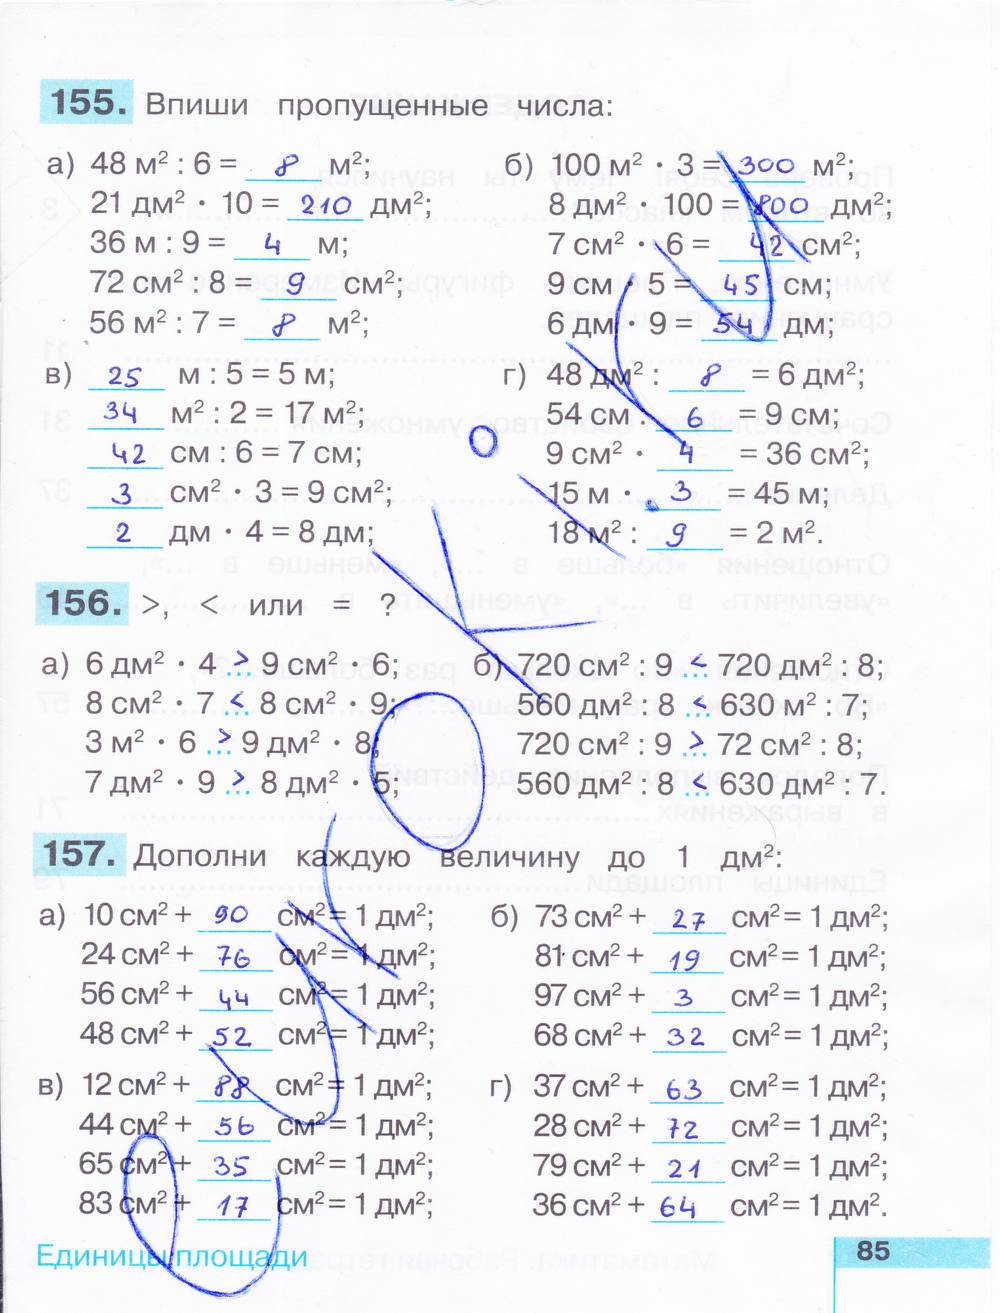 155. Впиши пропущенные числа:
а) 48 м² : 6 = 8 м²;
21 дм² · 10 = 210 дм²;
36 м : 9 = 4 м;
72 см² : 8 = 9 см²;
56 м² : 7 = 8 м²;
б) 100 м² · 3 = 300 м²;
8 дм² · 100 = 800 дм²;
7 см² · 6 = 42 см²;
9 см · 5 = 45 см;
6 дм · 9 = 54 дм;
в) 25 м : 5 = 5 м;
34 м² : 2 = 17 м²;
42 см : 6 = 7 см;
3 см² · 3 = 9 см²;
2 дм · 4 = 8 дм;
г) 48 дм² : 8 = 6 дм²;
54 см : 6 = 9 см;
9 см² · 4 = 36 см²;
15 м · 3 = 45 м;
18 м² : 9 = 2 м².
156. >, < или = ?
а) 6 дм² · 4 > 9 см² · 6;
8 см² · 7 < 8 см² · 9;
3 м² · 6 > 9 дм² · 8;
7 дм² · 9 > 8 дм² · 5;
б) 720 см² : 9 < 720 дм² : 8;
560 дм² : 8 < 630 м² : 7;
720 см² : 9 > 72 см² : 8;
560 дм² : 8 < 630 дм² : 7.
157. Дополни каждую величину до 1 дм²:
а) 10 см² + 90 см² = 1 дм²;
24 см² + 76 см² = 1 дм²;
56 см² + 44 см² = 1 дм²;
48 см² + 52 см² = 1 дм²;
б) 73 см² + 27 см² = 1 дм²;
81 см² + 19 см² = 1 дм²;
97 см² + 3 см² = 1 дм²;
68 см² + 32 см² = 1 дм²;
в) 12 см² + 88 см² = 1 дм²;
44 см² + 56 см² = 1 дм²;
65 см² + 35 см² = 1 дм²;
83 см² + 17 см² = 1 дм²;
г) 37 см² + 63 см² = 1 дм²;
28 см² + 72 см² = 1 дм²;
79 см² + 21 см² = 1 дм²;
36 см² + 64 см² = 1 дм².
Единицы площади
85